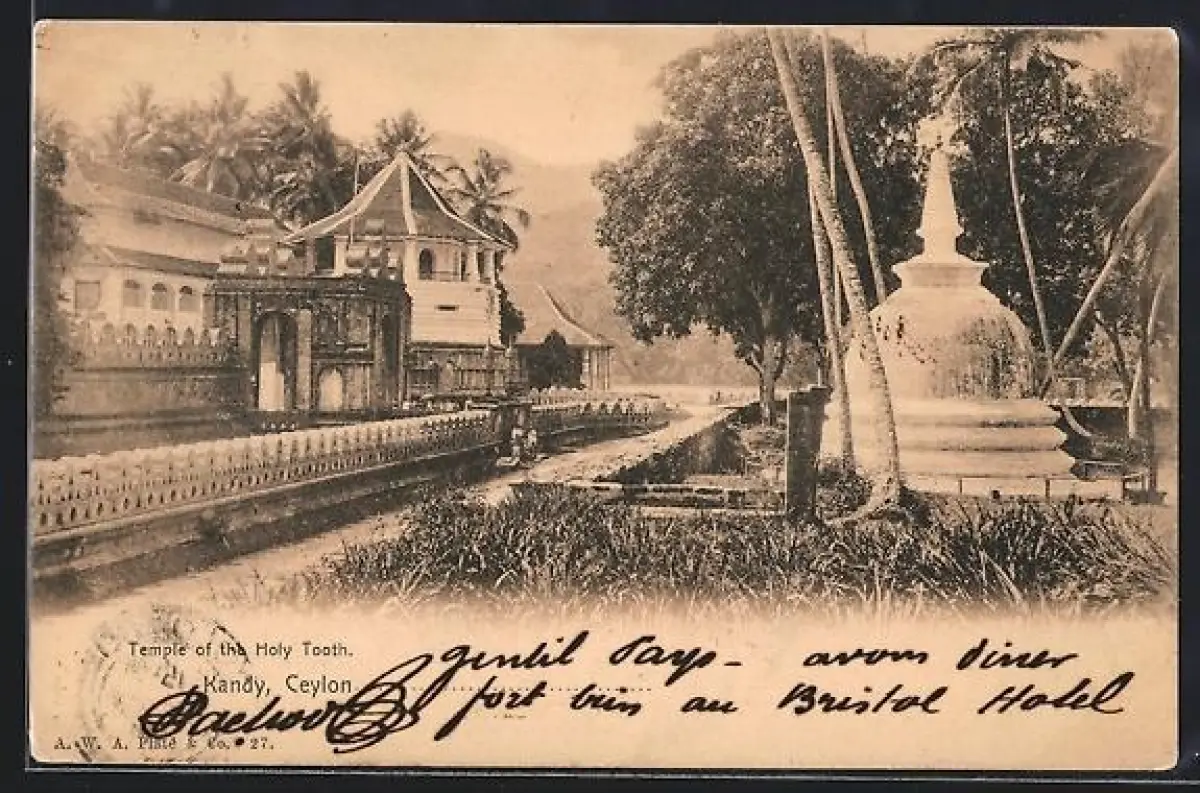 Temple of the Holy Tooth.
Kandy, Ceylon
gentil Pays - avons Diner
fort bien au Bristol Hotel
A. W. A. Plâté & Co. 27.